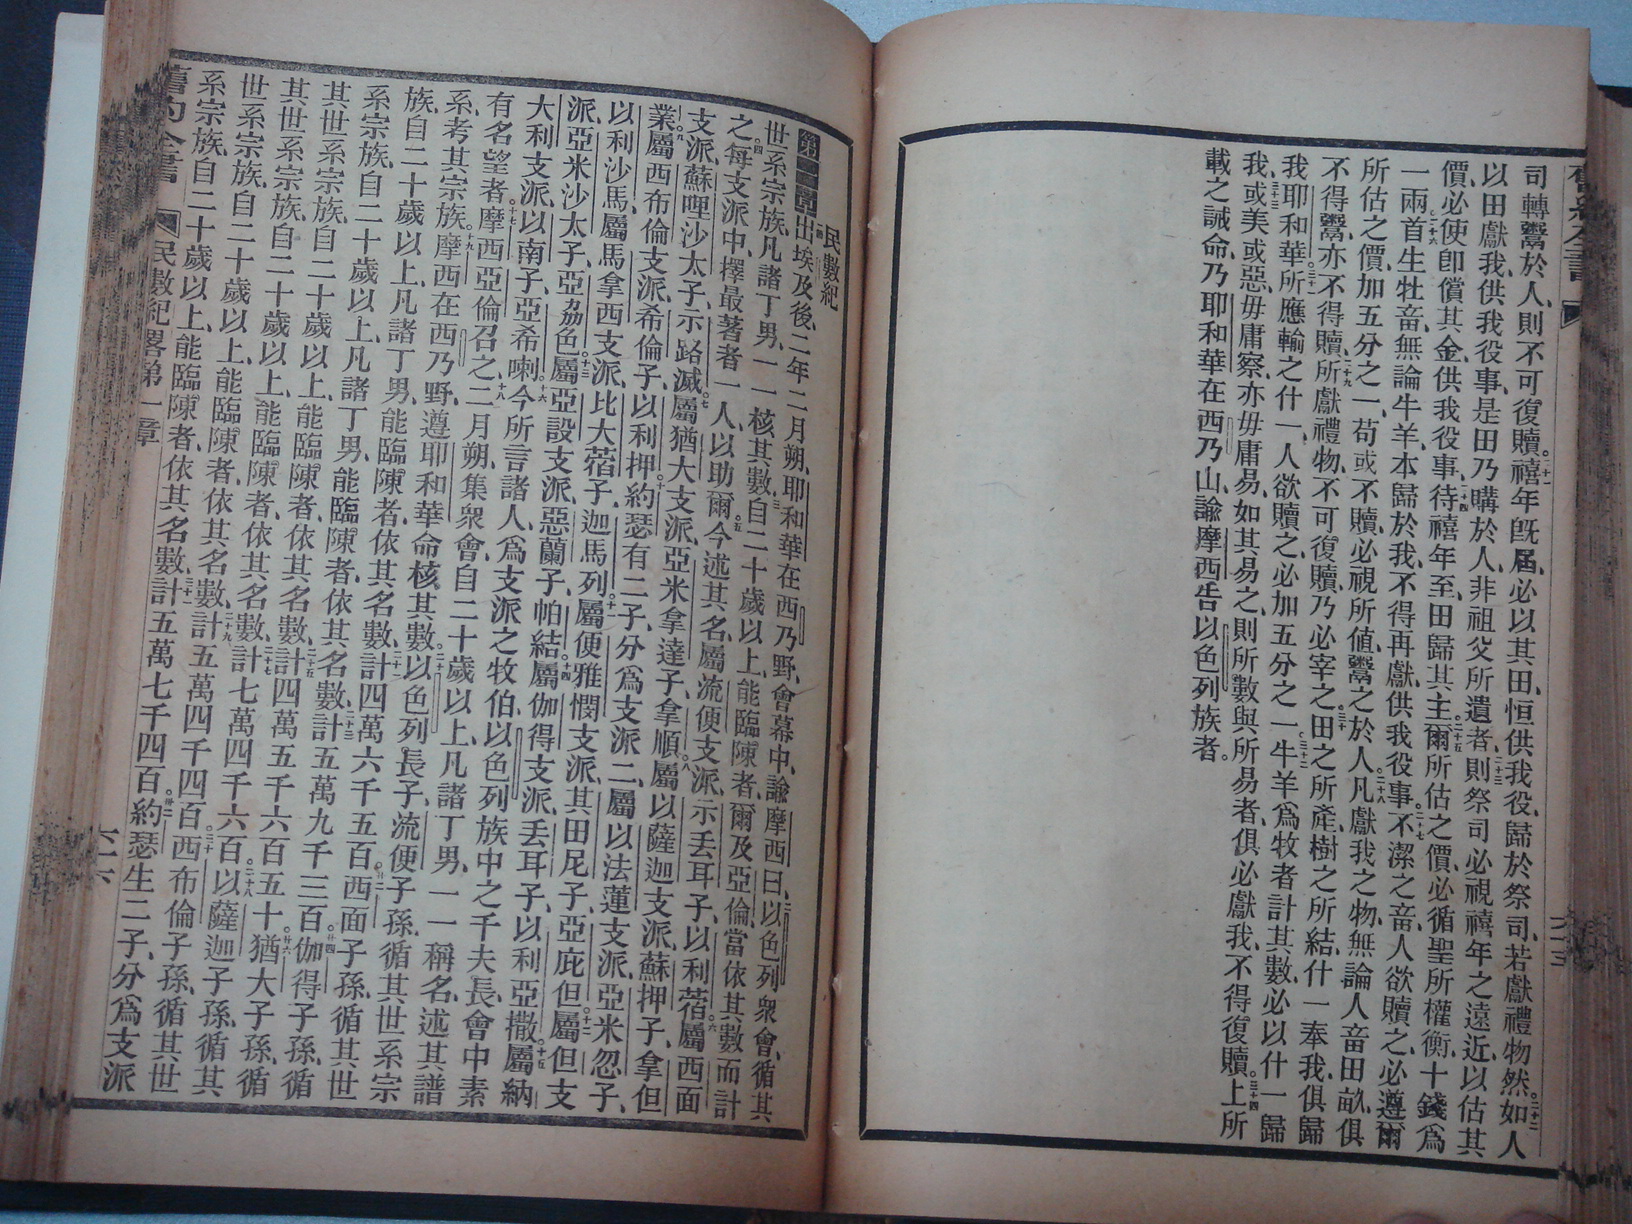 司轉鬻於人、則不可復贖。二十一禧年旣屆、必以其田、恒供我役、歸於祭司、若獻禮物然。二十二如人
以田獻我、供我役事、是田乃購於人、非祖父所遺者、二十三則祭司必視禧年之遠近、以估其
價、必使卽償其金、供我役事、二十四待禧年至、田歸其主、二十五爾所估之價、必循聖所權衡、十錢爲
一兩。二十六首生牡畜、無論牛羊、本歸於我、不得再獻、供我役事。二十七不潔之畜、人欲贖之、必遵爾
所估之價、加五分之一、苟或不贖、必視所値、鬻之於人。二十八凡獻我之物、無論人畜田畝、俱
不得鬻、亦不得贖、二十九所獻禮物、不可復贖、乃必宰之。三十田之所產、樹之所結、什一奉我、俱歸
我耶和華。三十一所應輸之什一、人欲贖之、必加五分之一。三十二牛羊爲牧者計其數、必以什一歸
我、三十三或美或惡、毋庸察、亦毋庸易、如其易之、則所數與所易者、俱必獻我、不得復贖。三十四上所
載之誡命、乃耶和華在西乃山、諭摩西告以色列族者。
民數紀畧
第一章 出埃及後、二年二月朔、耶和華在西乃野、會幕中、諭摩西曰、二以色列衆會、循其
世系宗族、凡諸丁男、一一核其數、三自二十歲以上、能臨陳者、爾及亞倫、當依其數而計
之。四每支派中、擇最著者一人、以助爾。五今述其名、屬流便支派、示丟耳子、以利蓿。六屬西面
支派、蘇哩沙太子、示路滅。七屬猶大支派、亞米拿達子、拿順。八屬以薩迦支派、蘇押子、拿但
業。九屬西布倫支派、希倫子、以利押。十約瑟有二子、分爲支派二、屬以法蓮支派、亞米忽子、
以利沙馬、屬馬拿西支派、比大蓿子、迦馬列。十一屬便雅憫支派、其田尾子、亞庇但。十二屬但支
派、亞米沙太子、亞刕色。十三屬亞設支派、惡蘭子、帕結。十四屬伽得支派、丟耳子、以利亞撒。十五屬納
大利支派、以南子、亞希喇。十六今所言諸人、爲支派之牧伯、以色列族中之千夫長、會中素
有名望者。十七摩西亞倫召之、十八二月朔、集衆會、自二十歲以上、凡諸丁男、一一稱名、述其譜
系、考其宗族。十九摩西在西乃野、遵耶和華命、核其數。二十以色列長子、流便子孫、循其世系宗
族、自二十歲以上、凡諸丁男、能臨陳者、依其名數、二十一計四萬六千五百。二十二西面子孫、循其世
系宗族、自二十歲以上、凡諸丁男、能臨陳者、依其名數、二十三計五萬九千三百。二十四伽得子孫、循
其世系宗族、自二十歲以上、能臨陳者、依其名數、二十五計四萬五千六百五十。二十六猶大子孫、循
其世系宗族、自二十歲以上、能臨陳者、依其名數、二十七計七萬四千六百。二十八以薩迦子孫、循其
世系宗族、自二十歲以上、能臨陳者、依其名數、二十九計五萬四千四百。三十西布倫子孫、循其世
系宗族、自二十歲以上、能臨陳者、依其名數、三十一計五萬七千四百。三十二約瑟生二子、分爲支派
舊約全書 民數紀畧第一章 六十六